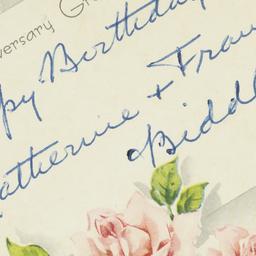 versary Gr
py Birthday
atherine + Fran
Biddl